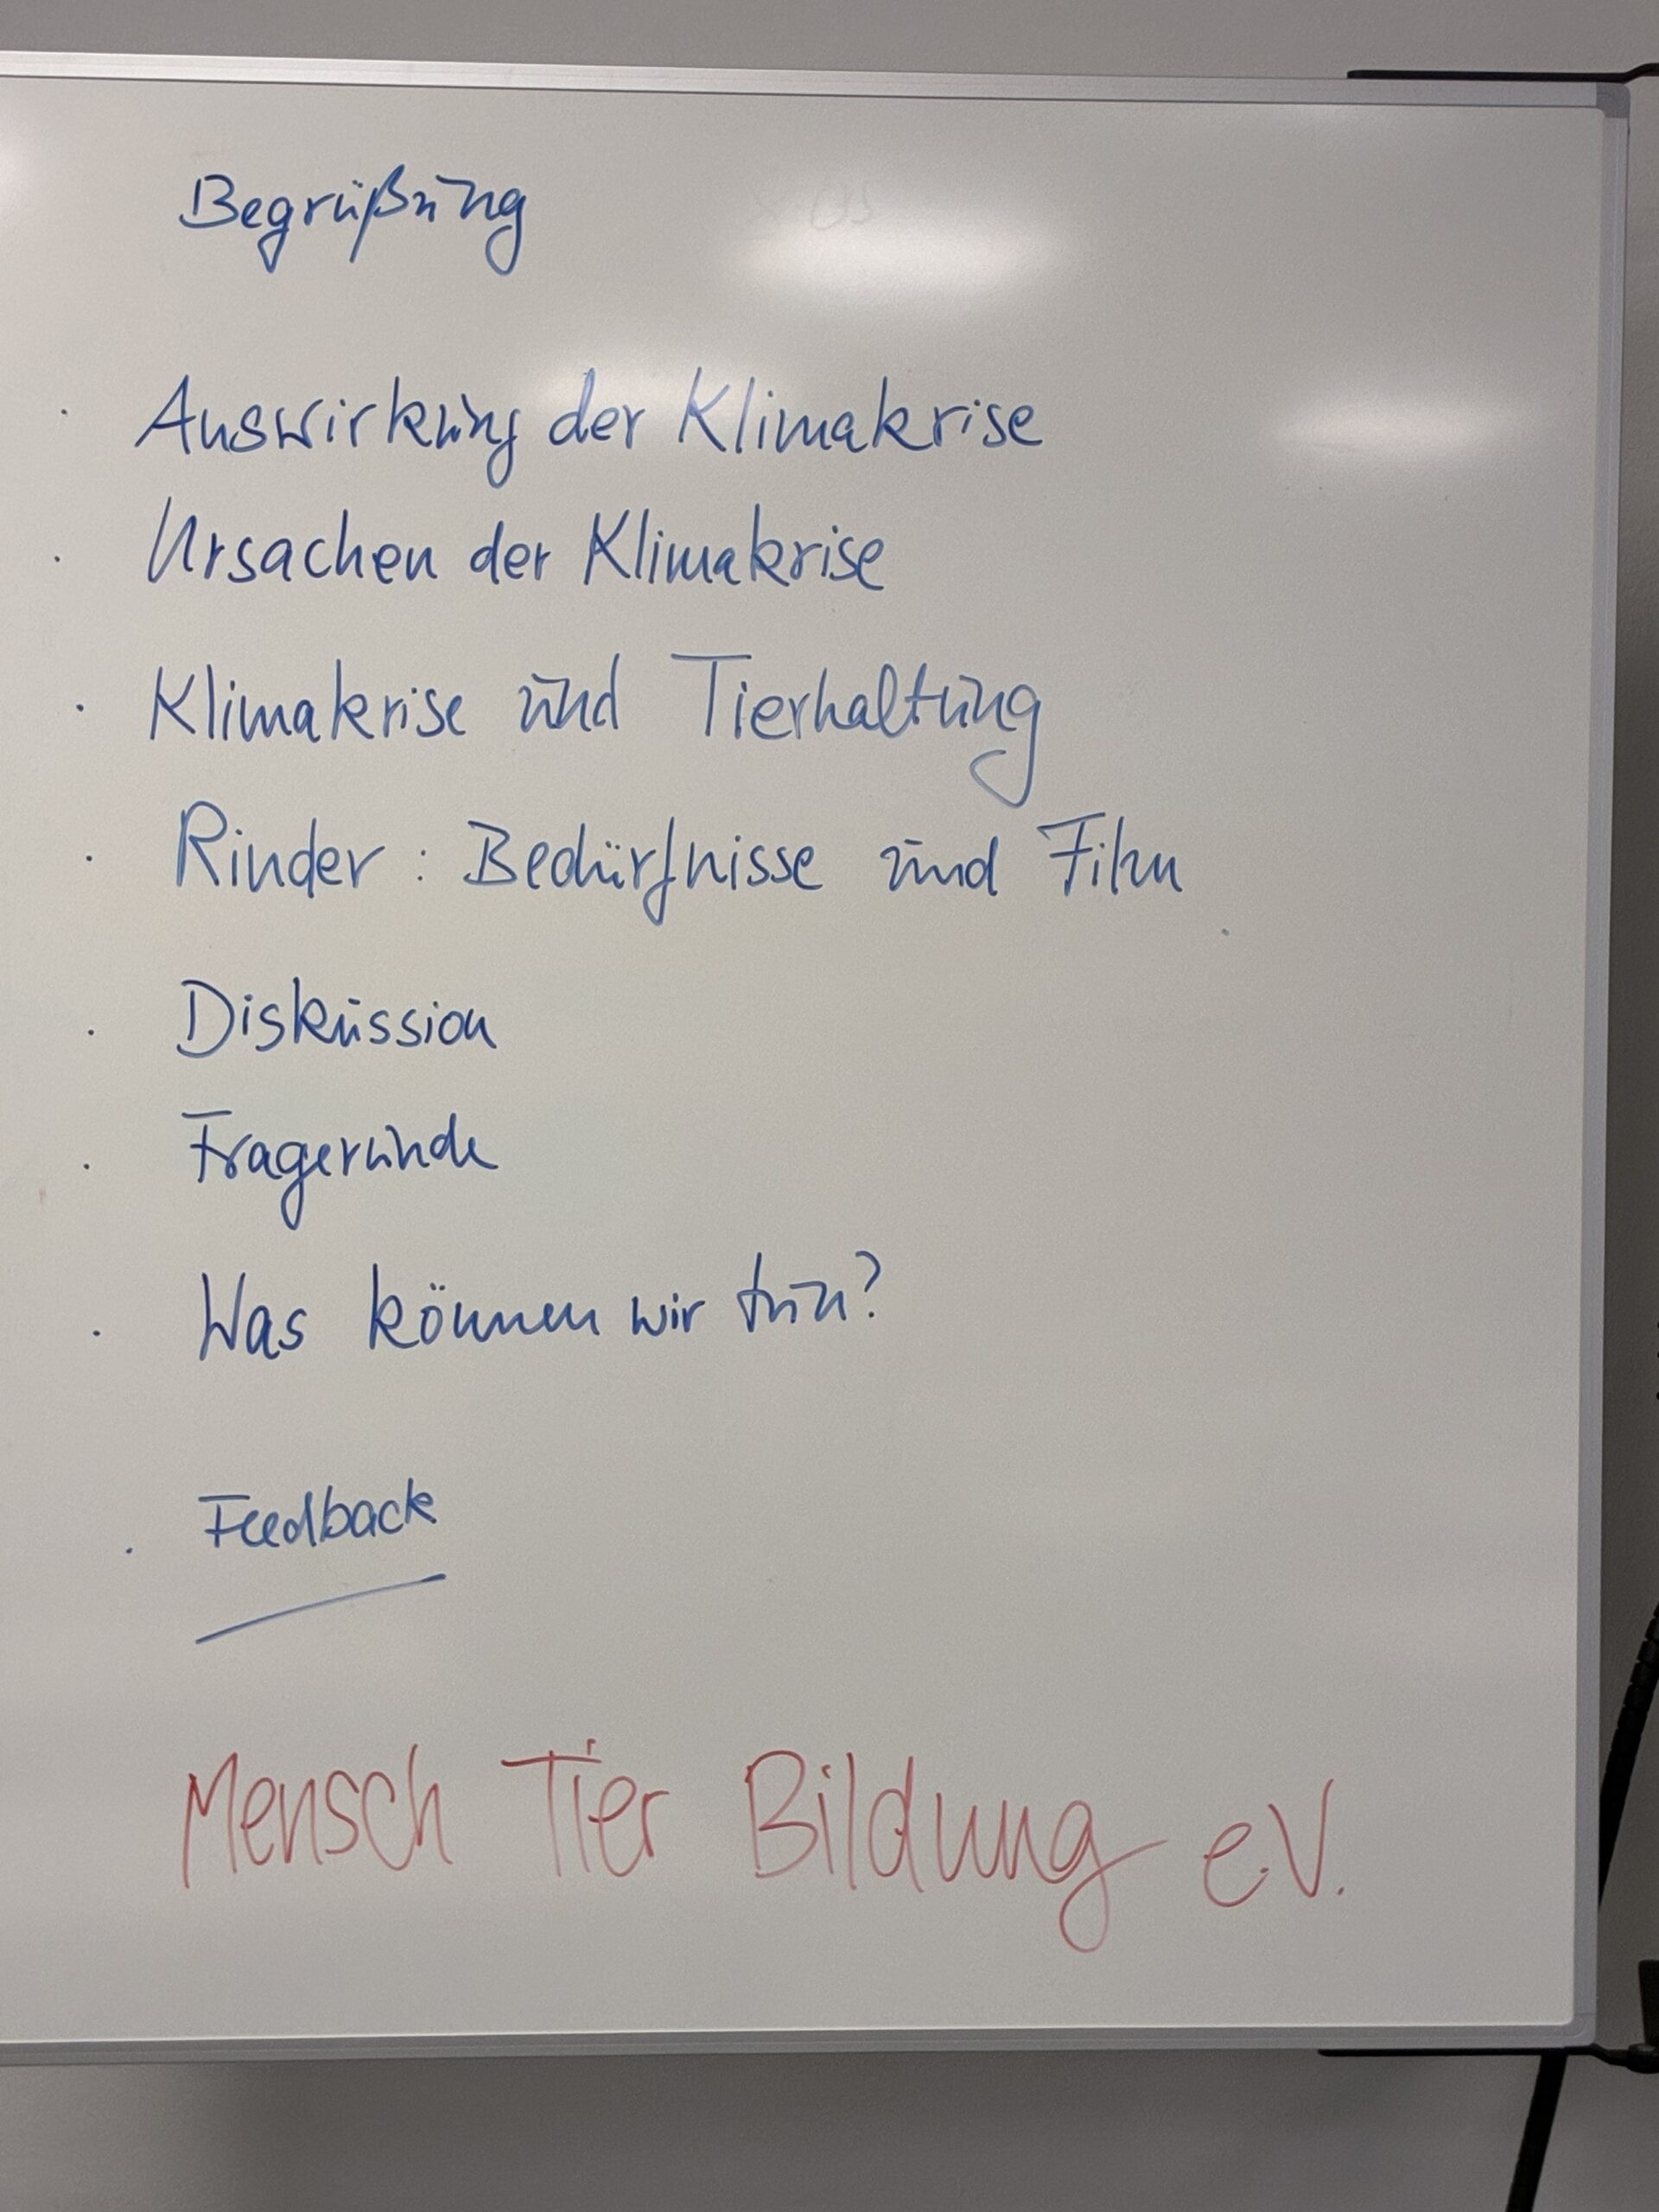 Begrüßung
· Auswirkung der Klimakrise
· Ursachen der Klimakrise
· Klimakrise und Tierhaltung
· Rinder : Bedürfnisse und Film
· Diskussion
· Fragerunde
· Was können wir tun?
· Feedback
Mensch Tier Bildung e.V.